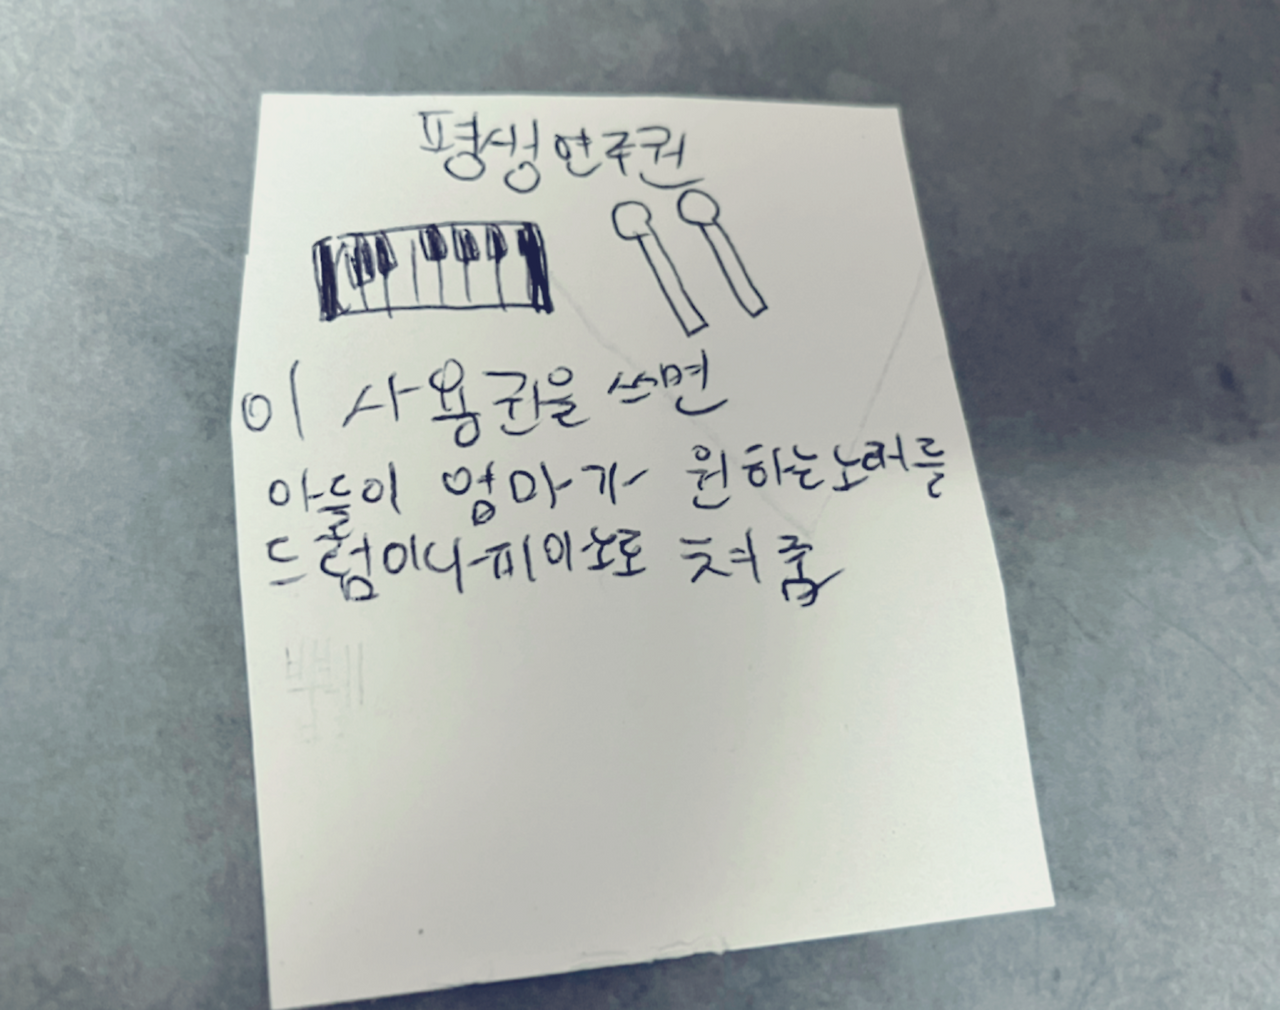 평생연주권
이 사용권을 쓰면
아들이 엄마가 원하는노래를
드럼이나피아노로 쳐줌